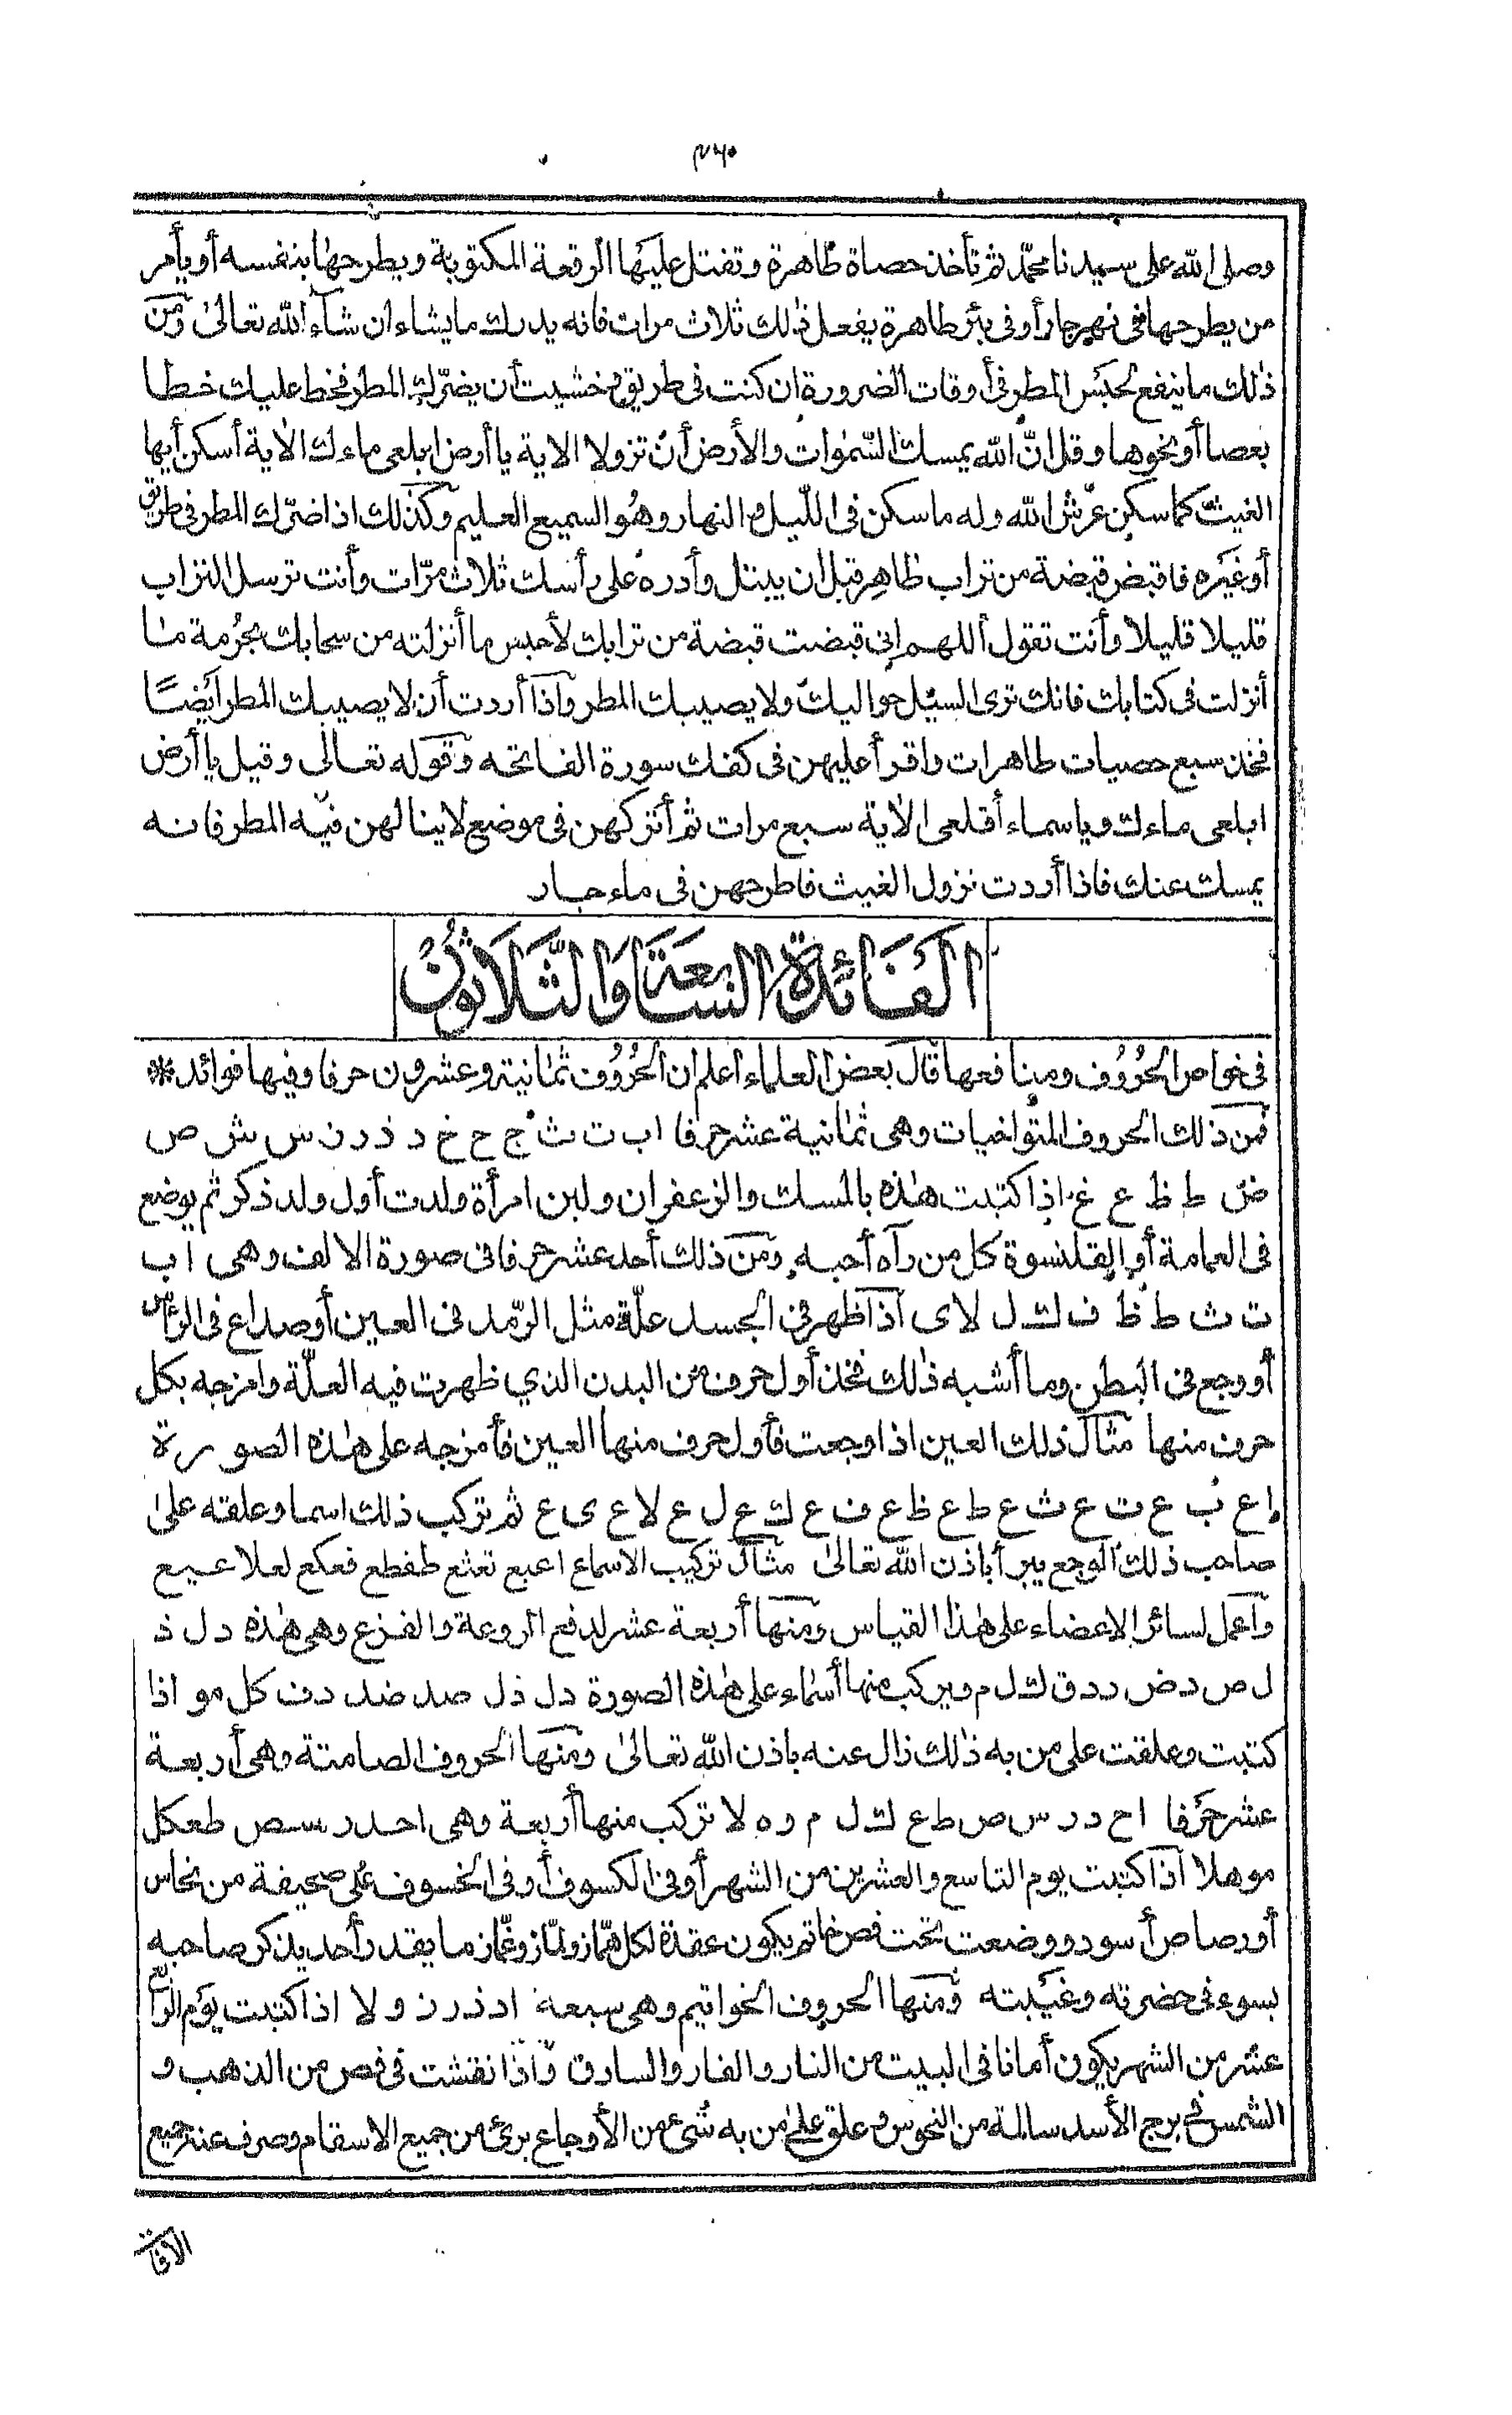 ٢٦٠
وصلى الله على سيدنا محمد ثم تأخذ حصاة طاهرة وتفتل عليها الرقعة المكتوبة ويطرحها بنفسه أو يأمر
من يطرحها فى نهر جار أو فى بئر طاهرة يفعل ذلك ثلاث مرات فانه يدرك ما يشاء ان شاء الله تعالى ومن
ذلك ما ينفع لحبس المطر فى أوقات الضرورة ان كنت فى طريق وخشيت أن يضرّك المطر فخط عليك خطا
بعصا أو نحوها وقل انّ الله يمسك السّموات والأرض أن تزولا الاية يا أرض ابلعى ماءك الاية أسكن أيها
الغيث كما سكن عرش الله وله ما سكن فى اللّيل والنهار وهو السميع العليم وكذلك اذا ضرّك المطر فى طريق
أو غيره فاقبض قبضة من تراب طاهر قبل ان يبتل وأدره على رأسك ثلاث مرّات وأنت ترسل التراب
قليلا قليلا وأنت تقول أللهم إنى قبضت قبضة من ترابك لأحبس ما أنزلته من سحابك بحرمة ما
أنزلت فى كتابك فانك ترى السيل حواليك ولا يصيبك المطر واذا أردت أن لا يصيبك المطر أيضًا
فخذ سبع حصيات طاهرات واقرأ عليهن فى كفك سورة الفاتحه وقوله تعالى وقيل يا أرض
ابلعى ماءك وياسماء أقلعى الاية سبع مرات ثم أتركهن فى موضع لا ينالهن فيه المطر فانه
يمسك عنك فاذا أردت نزول الغيث فاطرحهن فى ماء جار
الفَائدة التاسعَة وَالثَّلاَثُونُ
فى خواص الحُرُوُف ومنافعها قال بعض العلماء اعلم ان الحُرُوُف ثمانية وعشرون حرفا وفيها فوائد *
فمن ذلك الحروف المتواخيات وهى ثمانية عشر حرفا ا ب ت ث ج ح خ د ذ ر ز س ش ص
ض ط ظ ع غ اذا كتبت هذه بالمسك والزعفران ولبن امرأة ولدت أول ولد ذكر ثم يوضع
فى العمامة أو القلنسوة كل من رآه أحبه ومن ذلك أحد عشر حرفا فى صورة الالف وهى ا ب
ت ث ط ظ ف ك ل لا ى اذا ظهر فى الجسد علّة مثل الرّمد فى العين أو صداع فى الرأس
أو وجع فى البطن وما أشبه ذلك فخذ أول حرف من البدن الذي ظهرت فيه العلّة وامزجه بكل
حرف منها مثال ذلك العين اذا وجعت فأول حرف منها العين فأمزجه على هذه الصورة
ا ع ب ع ت ع ث ع ط ع ظ ع ف ع ك ع ل ع لا ع ى ع ثم تركب ذلك اسما وعلقه على
صاحب ذلك الوجع يبرأ باذن الله تعالى مثال تركيب الاسماء اعبع تعثع طفطع فعكع لعلا عيع
واعمل لسائر الاعضاء على هذا القياس ومنها أربعة عشر لدفع الروعة والفزع وهى هذه د ل ذ
ل ص د ض د د ق ك ل م و يركب منها أسماء على هذه الصورة دل ذل صد ضد دف كل مو اذا
كتبت وعلقت على من به ذلك زال عنه باذن الله تعالى ومنها الحروف الصامتة وهى أربعة
عشر حرفا ا ح د ر س ص ط ع ك ل م و ه لا تركب منها أربعة وهى احدر سص طعكل
موهلا اذا كتبت يوم التاسع والعشرين من الشهر أو فى الكسوف أو فى الخسوف على صحيفة من نحاس
أو رصاص أسود ووضعت تحت فص خاتم يكون عقدة لكل همّاز ولمّاز وغمّاز ما يقدر أحد يذكر صاحبه
بسوء فى حضرته وغيبته ومنها الحروف الخواتيم وهى سبعة ا د ذ ر ز و لا اذا كتبت يوم الرابع
عشر من الشهر يكون أمانا فى البيت من النار والفار والسارق واذا نقشت فى فص من الذهب و
الشمس فى برج الأسد سالمة من النحوس وعلق على من به شئ من الأوجاع برئ من جميع الاسقام وصرف عنه جميع
الآفات